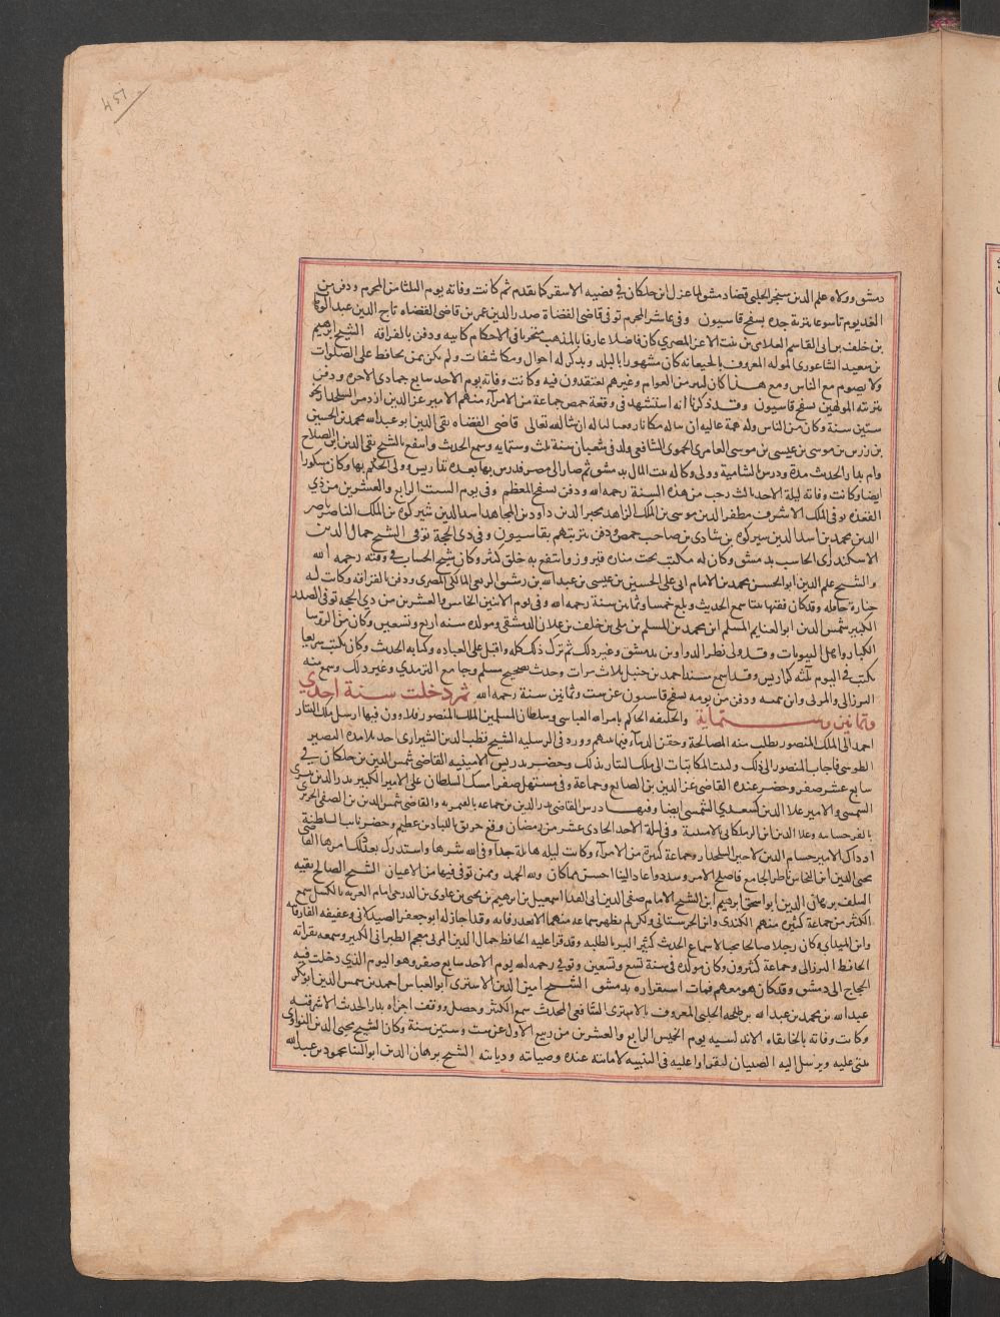 451
دمشق وولاه علم الدين سنجر الحلبي قضا دمشق لما عزل ابن خلكان في قضيه الاسقر كما تقدم ثم كانت وفاته يوم الثلثا ثامن المحرم ودفن من
الغد يوم تاسوعا بتربة جده بسفح قاسيون وفي عاشر المحرم توفي قاضي القضاة صدر الدين عمر بن قاضي القضاه تاج الدين عبد الوهاب
بن خلف بن ابي القاسم العلامي بن بنت الاعز المصري كان فاضلا عارفا بالمذهب متحريا في الاحكام كابيه ودفن بالقرافه الشيخ ابراهيم
بن سعيد الشاغوري الموله المعروف بالجيعانه كان مشهورا بالبلد ويذكر له احوال ومكاشفات ولم يكن ممن يحافظ على الصلوات
ولا يصوم مع الناس ومع هذا كان كثير من العوام وغيرهم يعتقدون فيه وكانت وفاته يوم الاحد سابع جمادى الاخره ودفن
بتربة المولهين بسفح قاسيون وقد ذكرنا انه استشهد في وقعة حمص جماعة من الامرآء منهم الامير عز الدين ازدمر السلحدار نحو
ستين سنة وكان من الناس وله همة عاليه ان ساله مكانا رفيعا ناله ان شا الله تعالى قاضي القضاه تقي الدين ابو عبد الله محمد بن الحسين
بن رزين بن موسى بن عيسى بن موسى العامري الحموي الشافعي ولد في شعبان سنة ثلث وستمايه وسمع الحديث وانتفع بالشيخ تقي الدين ابن الصلاح
وام بدار الحديث مدة ودرس بالشامية وولي وكاله بيت المال بدمشق ثم صار الى مصر فدرس بها بعدة تداريس وولي الحكم بها وكان مشكورا
ايضا وكانت وفاته ليلة الاحد ثالث رجب من هذه السنة رحمه الله ودفن بسفح المعظم وفي يوم السبت الرابع والعشرين من ذي
القعده توفي الملك الاشرف مظفر الدين موسى بن الملك الزاهد مجير الدين داود بن المجاهد اسد الدين شيركوه بن الملك الناصر ناصر
الدين محمد بن اسد الدين شيركوه بن شادي بن صاحب حمص ودفن بتربتهم بقاسيون وفي ذي الحجة توفي الشيخ جمال الدين
الاسكندري الحاسب بدمشق وكان له مكتب تحت مناره فيروز وانتفع به خلق كثير وكان شيخ الحساب في وقته رحمه الله
والشيخ علم الدين ابو الحسن محمد بن الامام ابي علي الحسين بن عيسى بن عبد الله بن رشيق الربعي المالكي المصري ودفن بالقرافه وكانت له
جنازة حافله وقد كان فقيها مفتيا سمع الحديث وبلغ خمسا وثمانين سنة رحمه الله وفي يوم الاثنين الخامس والعشرين من ذي الحجه توفي الصدر
الكبير شمس الدين ابو الغنايم المسلم ابن محمد بن المسلم بن مكي بن خلف بن علان الدمشقي ومولده سنه اربع وتسعين وكان من الروسا
الكبار واهل البيوتات وقد ولي نظر الدواوين بدمشق وغير ذلك ثم ترك ذلك كله واقبل على العباده وكتابه الحديث وكان يكتب سريعا
يكتب في اليوم ثلثة كراريس وقد اسمع مسند احمد بن حنبل ثلاث مرات وحدث بصحيح مسلم وجامع الترمذي وغير ذلك وسمع منه
البرزالي والمزي وابن تيميه ودفن من يومه بسفح قاسيون عن ست وثمانين سنة رحمه الله ثم دخلت سنة احدي
وثمانين وستماية والخليفه الحاكم بامر الله العباسي وسلطان المسلمين الملك المنصور قلاوون فيها ارسل ملك التتار
احمد الى الملك المنصور يطلب منه المصالحة وحقن الدمآء فيما بينهم وورد في الرسليه الشيخ قطب الدين الشيرازي احد تلامذه النصير
الطوسي فاجاب المنصور الى ذلك وكتبت المكاتبات الى ملك التتار بذلك وحضر تدريس الامينيه القاضي شمس الدين بن خلكان في
سابع عشر صفر وحضر عنده القاضي عز الدين بن الصايغ وجماعة وفي مستهل صفر امسك السلطان على الامير الكبير بدر الدين بيسري
الشمسي والامير علا الدين كسغدي الشمسي ايضا وفيها درس القاضي بدر الدين بن جماعه بالقيمريه والقاضي شمس الدين بن الصفي الحريري
بالفرخشاهيه وعلا الدين ابن الزملكاني بالامينيه وفي ليلة الاحد الحادي عشر من رمضان وقع حريق باللبادين عظيم وحضر نايب السلطنة
اذ ذاك الامير حسام الدين لاجين السلحدار وجماعة كثيرة من الامرآء وكانت ليله هائلة جدا وقى الله شرها واستدرك بعد ذلك امرها القاضي
محيي الدين ابن النحاس ناظر الجامع فاصلح الامر وسدد واعاد البنا احسن مما كان ولله الحمد وممن توفي فيها من الاعيان الشيخ الصالح بقيه
السلف برهان الدين ابو اسحق ابراهيم ابن الشيخ الامام صفي الدين ابي الفدا اسمعيل بن ابراهيم بن يحيى بن علوي بن الدرجي امام العزيه بالكشك سمع
الكثير من جماعة كثيره منهم الكندي وابن الحرستاني ولكن لم يظهر سماعه منهما الا بعد وفاته وقد اجاز له ابو جعفر الصيدلاني وعفيفه الفارقانيه
وابن الميداني وكان رجلا صالحا محبا لاسماع الحديث كثير البر بالطلبه وقد قرا عليه الحافظ جمال الدين المزي معجم الطبراني الكبير وسمعه بقراته
الحافظ البرزالي وجماعة كثيرون وكان مولده في سنة تسع وتسعين وتوفي رحمه الله يوم الاحد سابع صفر وهو اليوم الذي دخلت فيه
الحجاج الى دمشق وقد كان هو معهم فمات استقراره بدمشق الشيخ امين الدين الاشتري ابو العباس احمد بن شمس الدين ابو بكر
عبد الله بن محمد بن عبد الله بن طلحه الحلبي المعروف بالاشتري الشافعي المحدث سمع الكثير وحصل ووقف اجزاه بدار الحديث الاشرفيه
وكانت وفاته بالخانقاه الاندلسيه يوم الخميس الرابع والعشرين من ربيع الاول عن ست وستين سنة وكان الشيخ محيي الدين النواوي
يثني عليه ويرسل اليه الصبيان ليقراوا عليه في البيت لامانته عنده وصيانته وديانته الشيخ برهان الدين ابو الثنا محمود بن عبد الله